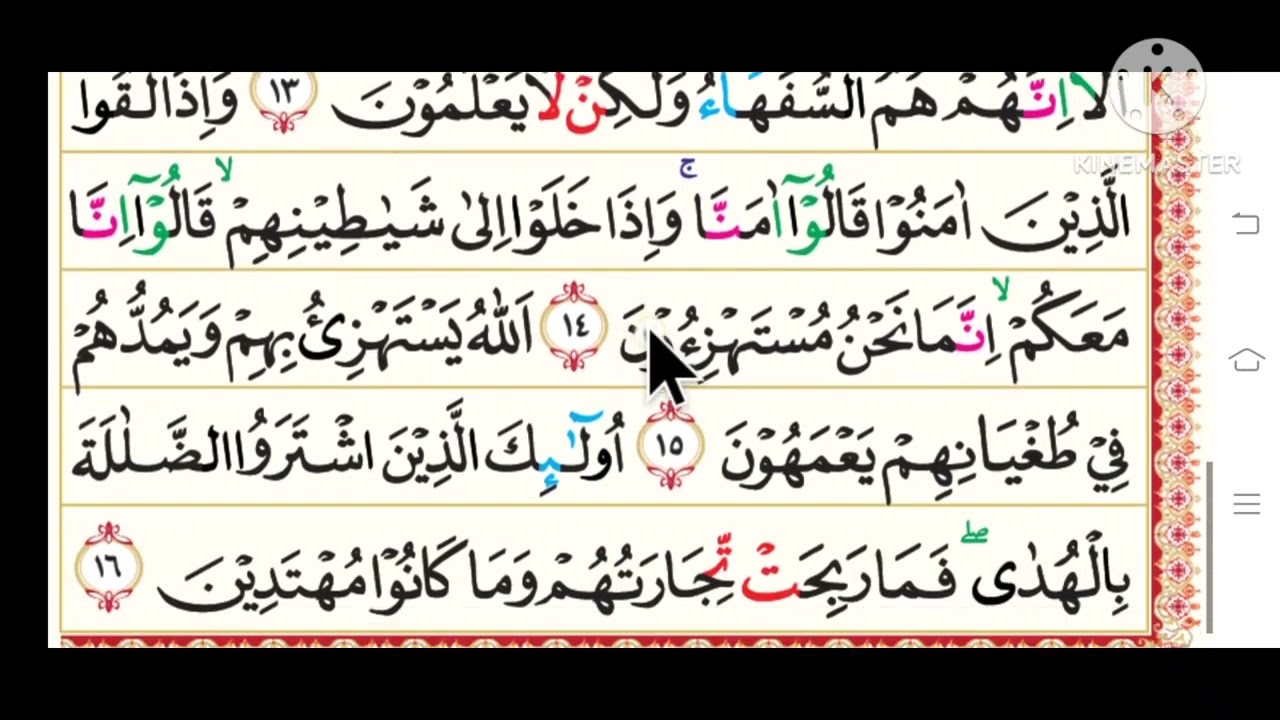 اَلَاۤ اِنَّهُمْ هُمُ السُّفَهَآءُ وَلٰكِنْ لَّا يَعْلَمُوْنَ ١٣ وَاِذَا لَقُوا
الَّذِيْنَ اٰمَنُوْا قَالُوْۤا اٰمَنَّا ۚ وَاِذَا خَلَوْا اِلٰى شَيٰطِيْنِهِمْ ۙ قَالُوْۤا اِنَّا
مَعَكُمْ ۙ اِنَّمَا نَحْنُ مُسْتَهْزِءُوْنَ ١٤ اَللّٰهُ يَسْتَهْزِئُ بِهِمْ وَيَمُدُّهُمْ
فِيْ طُغْيَانِهِمْ يَعْمَهُوْنَ ١٥ اُولٰٓئِكَ الَّذِيْنَ اشْتَرَوُا الضَّلٰلَةَ
بِالْهُدٰى ۖ فَمَا رَبِحَتْ تِّجَارَتُهُمْ وَمَا كَانُوْا مُهْتَدِيْنَ ١٦
KINEMASTER